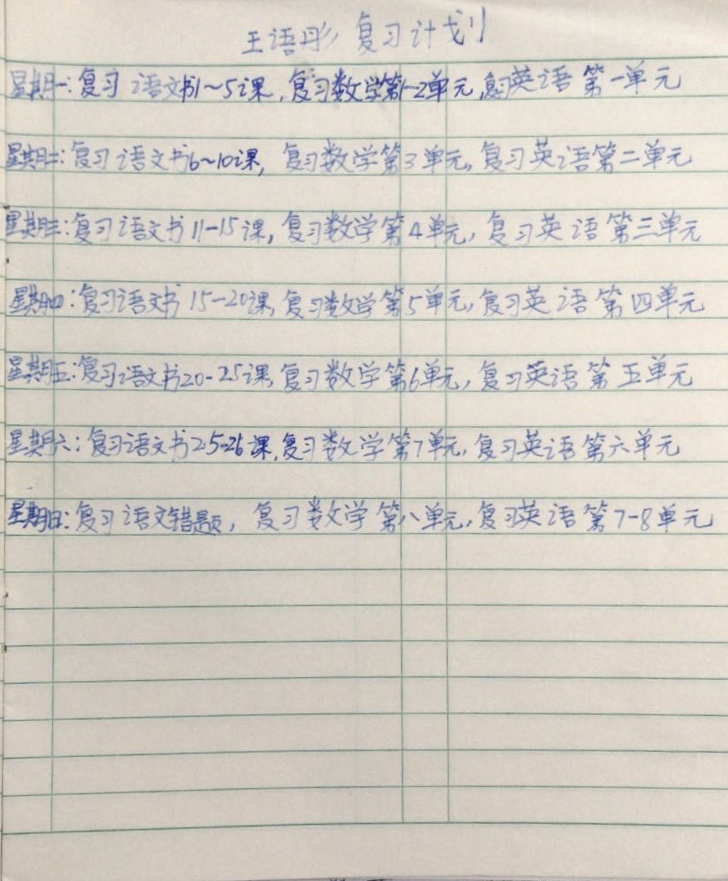 王语彤 复习计划
星期一:复习语文书1~5课,复习数学第1-2单元,复习英语第一单元
星期二:复习语文书6~10课,复习数学第3单元,复习英语第二单元
星期三:复习语文书11-15课,复习数学第4单元,复习英语第三单元
星期四:复习语文书15-20课,复习数学第5单元,复习英语第四单元
星期五:复习语文书20-25课,复习数学第6单元,复习英语第五单元
星期六:复习语文书25-26课,复习数学第7单元,复习英语第六单元
星期日:复习语文错题,复习数学第八单元,复习英语第7-8单元